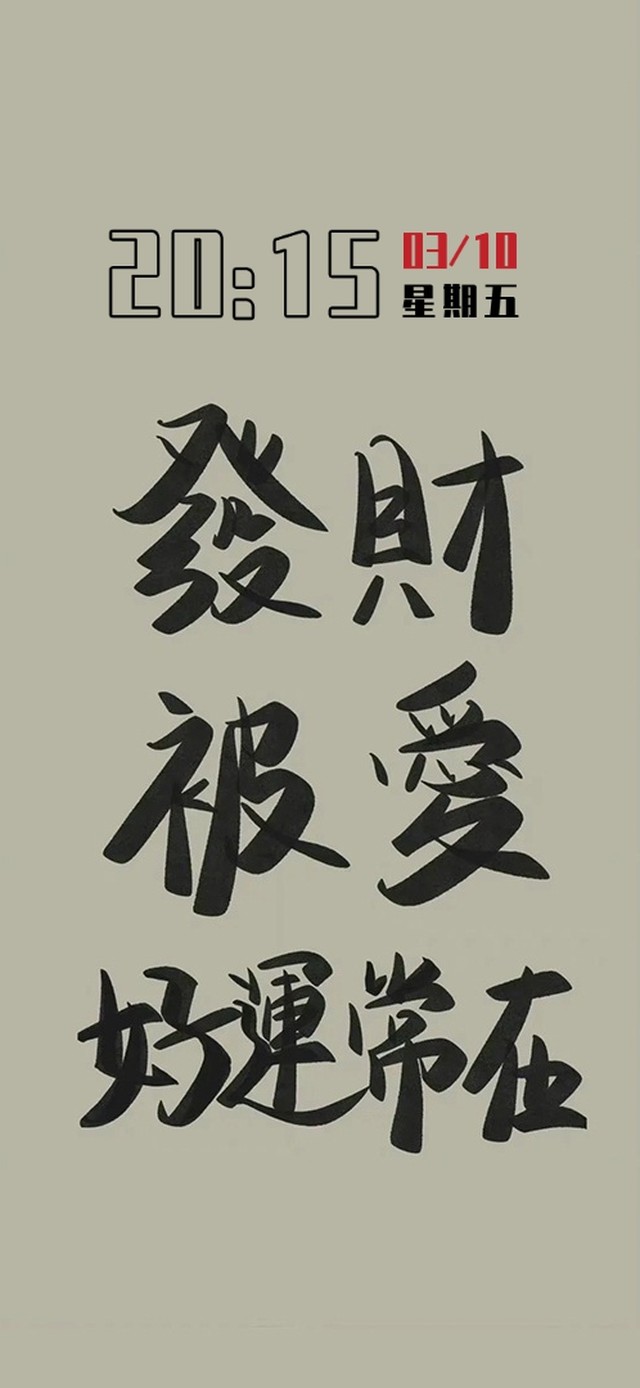 20:15
03/10
星期五
發財
被愛
好運常在